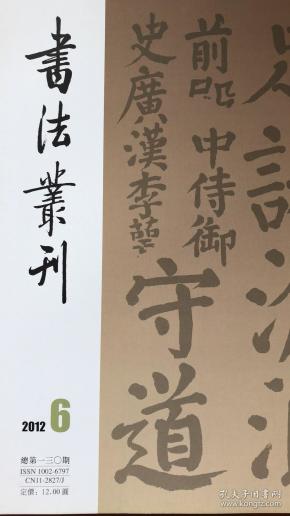 書法叢刊
2012 6
總第一三〇期
ISSN 1002-6797
CN11-2827/J
定價：12.00圓
前
中侍御
史廣漢李
守道
孔夫子旧书网